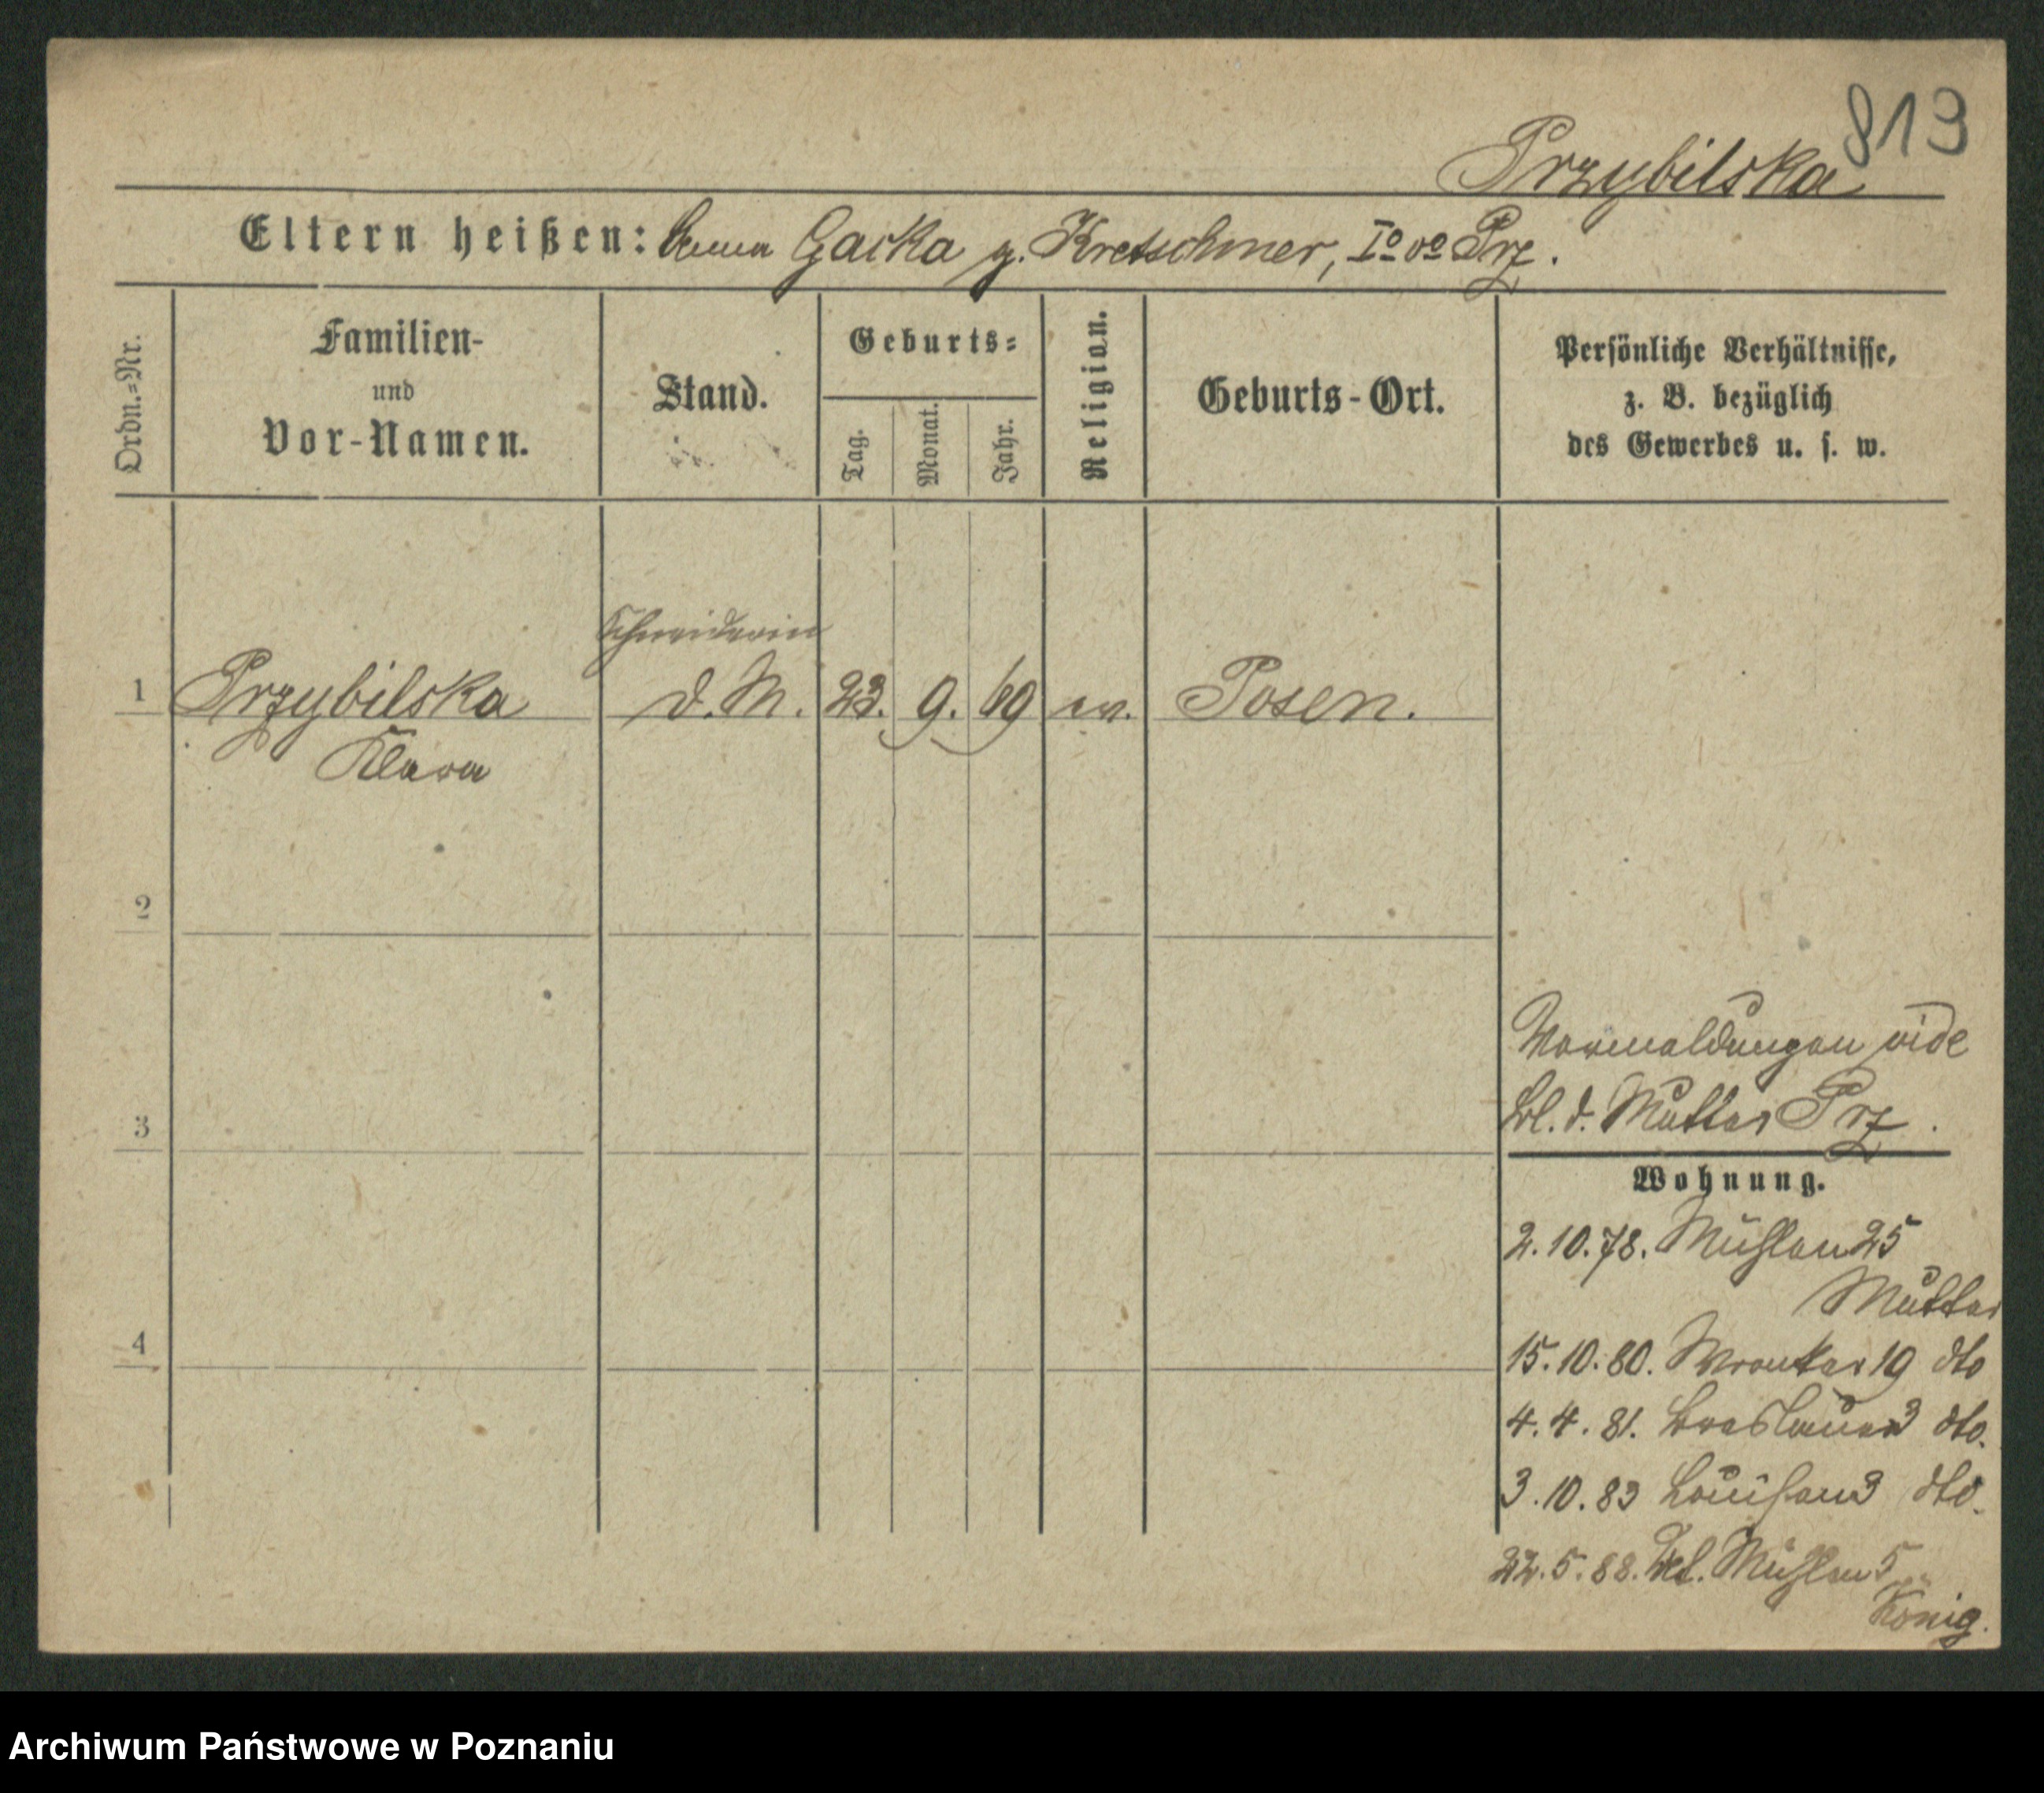 813
Przybilska
Eltern heißen: Anna Gacka g. Kretschmer, I° vo Prz.
Ordn.=Nr.
Familien-
und
Vor-Namen.
Stand.
Geburts=
Tag.
Monat.
Jahr.
Religion.
Geburts-Ort.
Persönliche Verhältnisse,
z. B. bezüglich
des Gewerbes u. s. w.
Schneiderin
1 Przybilska d. M. 23. 9. 69 ev. Posen.
Klara
2
3
4
Vormeldungen vide
Bl. d. Mutter Prz.
Wohnung.
2.10.78. Mühlen 25
Mutter
15.10.80. Wronker 19 dto
4.4.81. Breslauer 3 dto.
3.10.83 Louisen 3 dto.
22.5.88. Mühlen 5
König.
Archiwum Państwowe w Poznaniu